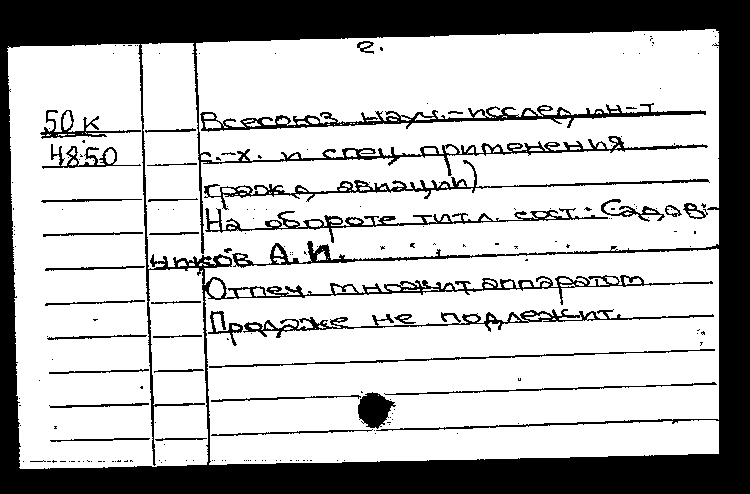 2.
50 к Всесоюз. науч.-исслед. ин-т
4850 с.-х. и спец. применения
гражд. авиации)
На обороте тит. л. сост.: Садов-
ников А. И.
Отпеч. множит. аппаратом
Продаже не подлежит.